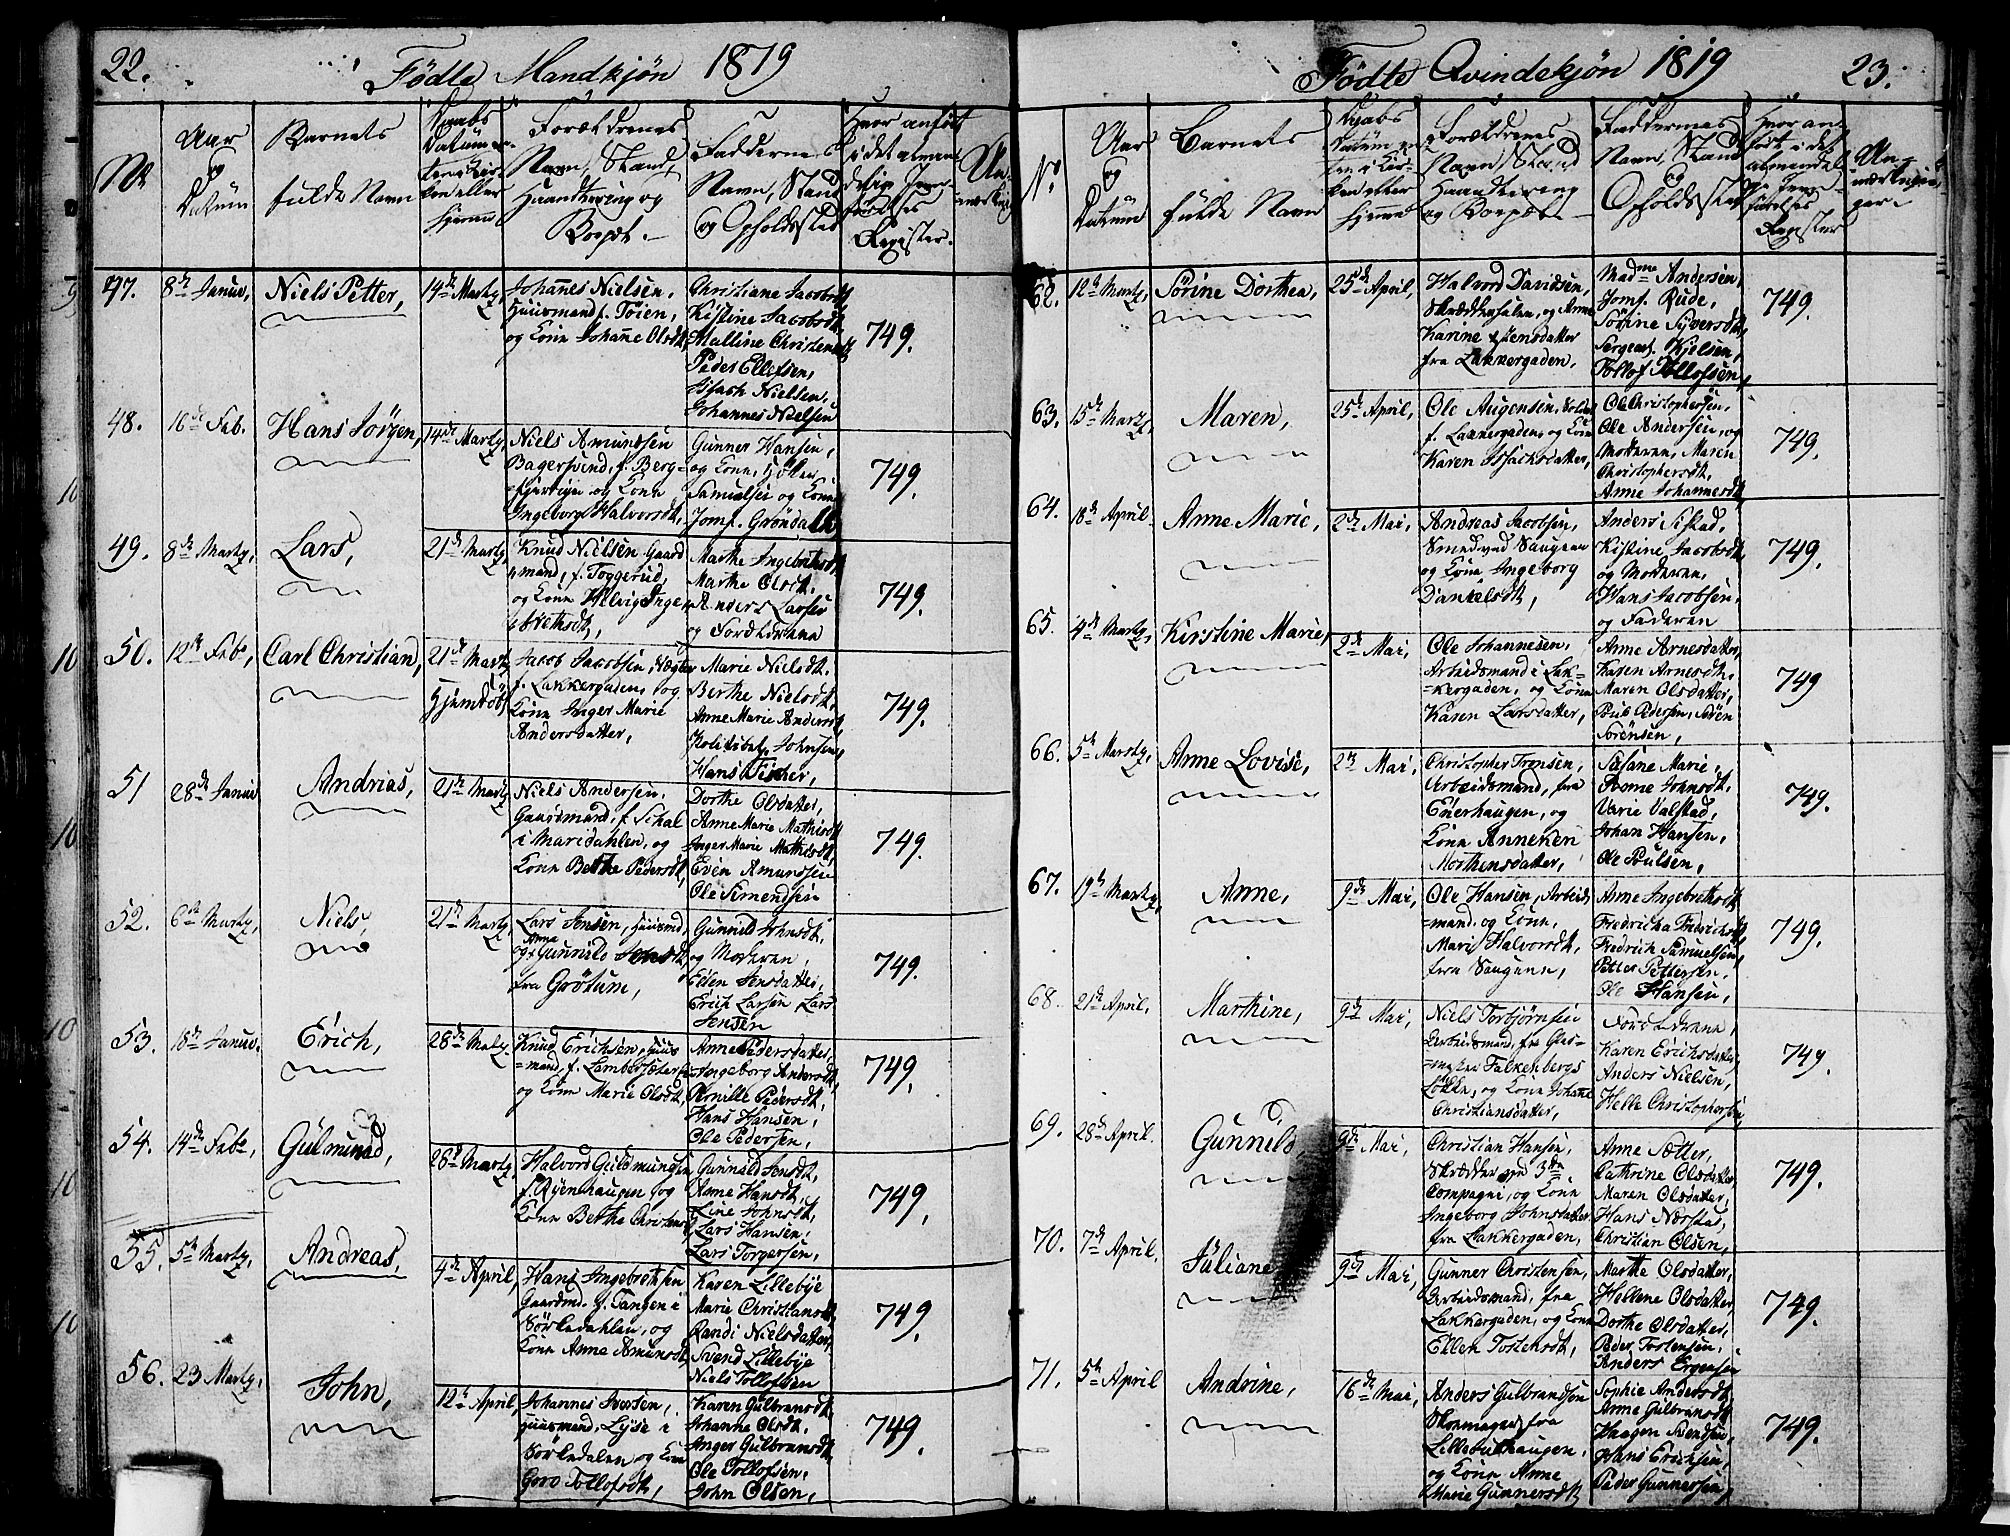 22.
Fødte Mandkjøn 1819
No
Aar
og
Datum
Barnets
fulde Navn
Daabs
Datum en-
ten i Kir-
ken eller
hjemme
Forældrenes
Navn, Stand,
Haandtering og
Bopæl.
Faddernes
Navn, Stand
og Opholdssted
Hvor anført
i det almin-
delige Jevn-
førelses
Register.
An-
mærkn.
47.
8de Januar,
Niels Petter,
14de Marty,
Johannes Nielsen,
Huusmand f. Töien,
og Kone Johanne Olsdt,
Christiane Jacobsdt,
Kistine Jacobsdt,
Malline Christensdt,
Peder Ellefsen,
Isach Nielsen,
Johannes Nielsen
749.
48.
16de Feb.
Hans Jörgen,
14de Marty,
Niels Amundsen
Bagersvend, f. Berg-
fjerdingen og Kone
Ingeborg Halvorsdt,
Gunner Hansen,
og Kone,
Samuelsen og Kone
Jomf. Gröndahl,
749.
49.
8de Marty,
Lars,
21de Marty,
Knud Nielsen Gaard
mand, f. Toggerud,
og Kone Helvig Inge-
brethsdt,
Marthe Ingebrethsdt,
Marthe Olsdt,
Anders Larsen
og Forældrene
749.
50.
12te Feb,
Carl Christian,
21de Marty
Hjemdöbt
Jacob Jacobsen, Vægter
f. Lakkergaden, og
Kone Inger Marie
Andersdatter,
Marie Nielsdt,
Berthe Nielsdt,
Anne Marie Andersdt,
Politibet. Johnsen,
Hans Fischer,
749.
51
28de Januar
Andrias,
21de Marty,
Niels Andersen,
Gaardmand, f. Skal
i Maridahlen, og
Kone Berthe Pedersdt,
Dorthe Olsdatter,
Anne Marie Mathisdt,
Inger Marie Mathisdt,
Even Amundsen
Ole Simensen
749.
52.
6te Marty,
Niels,
21de Marty,
Lars Jensen, Huusmd,
Anne
og Gunnild Jensdt,
fra Grötum,
Gunnild Johnsdt,
og Moderen,
Ellen Jensdatter,
Erich Larsen Lars
Jensen
749.
53.
18de Januar.
Erich,
28de Marty,
Knud Erichsen, Huus
=mand, f. Lambertsæter
og Kone Marie Olsdt,
Anne Pedersdatter,
Ingeborg Andersdt,
Pernille Pedersdt,
Hans Hansen,
Ole Pedersen,
749.
54.
14de Feb,
Gulmund,
28de Marty,
Halvord Guldmundsen
f. Ryenhaugen og
Kone Berthe Christens
Gunnild Jensdt,
Anne Hansdt,
Line Johnsdt,
Lars Hansen,
Lars Torgersen,
749,
55.
5te Marty,
Andreas,
4de April,
Hans Ingebrethsen
Gaardmd. f. Tangen i
Sörkedahlen, og
Kone Anne Amundsdt,
Karen Lillebye
Marie Christiansdt,
Randi Nielsdatter,
Svend Lillebye
Niels Tollofsen
749.
56.
23 Marty,
John,
12te April,
Johannes Iversen,
Huusmand, Lyse i
Sörkedalen og Kone
Goro Tollofsdt,
Karen Gulbransdt,
Johanne Olsdt,
Inger Gulbransdt,
Ole Tollofsen,
John Olsen,
749.
Födte Qvindekjön 1819
23.
No
Aar
og
Datum
Barnets
fulde Navn
Daabs
Datum en-
ten i Kir-
ken eller
hjemme
Forældrenes
Navn, Stand
Haandtering
og Bopæl
Faddernes
Navn, Stand
og
Opholdssted
Hvor an-
fört i det
almindeli-
ge Jevn-
förelses
Register
An-
mærknin-
ger
62.
12te Marty,
Sörine Dorthea,
25de April,
Halvord Davidsen,
Skrædersvend, og Anne
Karine Jensdatter
fra Lakkergaden,
Madme Andersen,
Jomf. Rude,
Sörine Syversdt,
Sergeant Kjelsen,
Tollof Tollofsen,
749.
63.
15de Marty,
Maren,
25de April,
Ole Augensen, Soldat
f. Lakkergaden, og Kone
Karen Isachsdatter,
Ole Christophersen,
Ole Andersen, og
Moderen, Maren
Christophersdt,
Anne Johannesdt,
749.
64.
18de April.
Anne Marie,
2den Mai,
Andreas Jacobsen,
Smed ved Saugene
og Kone Ingeborg
Danielsdt,
Anders
Kistine Jacobsdt,
og Moderen,
Hans Jacobsen,
og Faderen
749.
65.
4de Marty,
Kirstine Marie,
2den Mai,
Ole Johannesen,
Arbeidsmand i Lak-
=kergaden, og Kone
Karen Larsdatter,
Anne Arnesdatter,
Karen Arnesdt,
Maren Olsdatter,
Poul Pedersen, Sören
Sörensen,
749
66.
5te Marty,
Anne Lovise,
2den Mai,
Christopher Tronsen,
Arbeidsmand, fra
Enerhaugen, og
Kone Anneken
Morthensdatter,
Susane Marie,
Anne Johnsdt,
Marie Valstad,
Johan Hansen,
Ole Poulsen,
749.
67.
19de Marty,
Anne,
9de Mai,
Ole Hansen, Arbeids
=mand, og Kone,
Mari Halvorsdt,
fra Saugene,
Anne Ingebrethsdt,
Fredricka Fredrichsdt,
Fredrich Samuelsen,
Petter Pettersen,
Ole Hansen,
749.
68.
21de April,
Marthine,
9de Mai,
Niels Torbjörnsen
Arbeidsmand, fra Glas-
=magar Falkenbergs
Lökke, og Kone Johanne
Christiansdatter,
Forældrene,
Karen Erichsdatter,
Anders Nielsen,
Helle Christophersen,
749.
69.
28de April.
Gunnild
9de Mai,
Christian Hansen,
Skrædder ved 3de
Compagni, og Kone
Ingeborg Johnsdatter
fra Lakkergaden,
Anne Sætter,
Cathrine Olsdatter,
Maren Olsdatter,
Hans Nærstad,
Christian Olsen,
749.
70.
7de April.
Juliane
9de Mai,
Gunner Christensen,
Arbeidsmand, fra
Lakkergaden, og Kone
Ellen Tostensdt,
Marthe Olsdatter,
Hellene Olsdatter,
Dorthe Olsdatter,
Peder Tostensen,
Anders Ergensen
749.
71.
5te April
Andrine,
16de Mai,
Anders Gulbrandsen
Skomager fra
Lillebuthaugen,
og Kone Anne
Marie Gunnersdt,
Sophie Andersdt,
Anne Gulbransdt,
Haagen Svendsen,
Hans Erichsen,
Peder Gunnersen,
749.